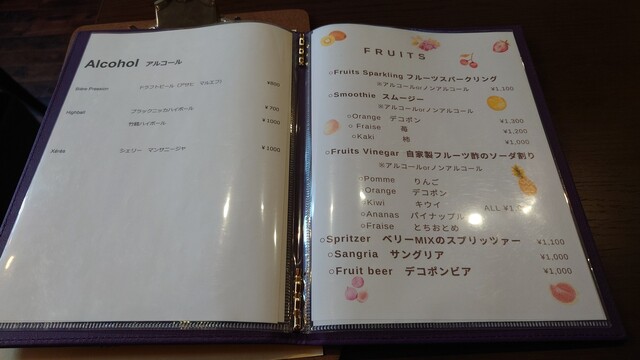 Alcohol アルコール
Bière Pression ドラフトビール（アサヒ マルエフ） ¥800
Highball ブラックニッカハイボール ¥700
竹鶴ハイボール ¥1000
Xérès シェリー マンサニージャ ¥1000
FRUITS
○Fruits Sparkling フルーツスパークリング
※アルコールorノンアルコール ¥1,100
○Smoothie スムージー
※アルコールorノンアルコール
○Orange デコポン ¥1,300
○Fraise 苺 ¥1,200
○Kaki 柿 ¥1,000
○Fruits Vinegar 自家製フルーツ酢のソーダ割り
※アルコールorノンアルコール
○Pomme りんご
Orange デコポン
○Kiwi キウイ
ALL
○Ananas パイナップル
○Fraise とちおとめ
○Spritzer ベリーMIXのスプリッツァー ¥1,100
○Sangria サングリア ¥1,000
○Fruit beer デコポンビア ¥1,000